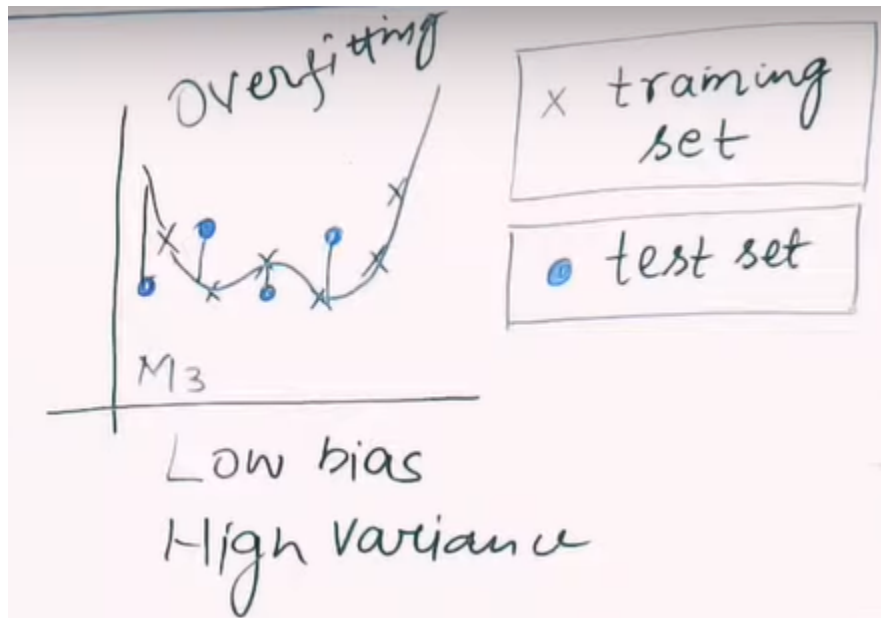 Overfitting
x training
set
test set
M3
Low bias
High Variance